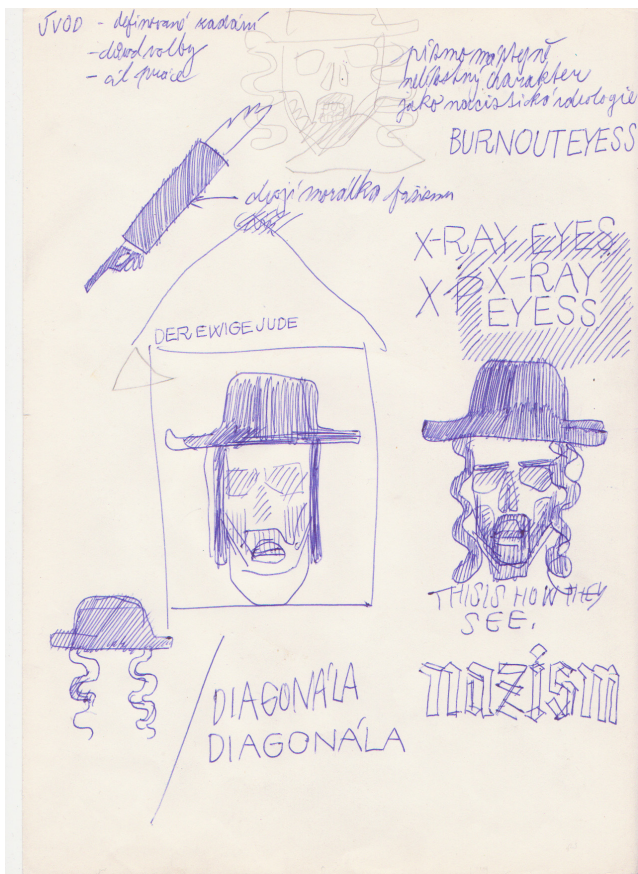 ÚVOD - definované zadání
- důvod volby
- cíl práce
písmo má stejně
milostný charakter
jako nacistická ideologie
BURNOUTEYESS
dvojí morálka fašismu
X-RAY EYES
X-RAY
EYESS
DER EWIGE JUDE
THIS IS HOW THEY
SEE.
nazism
DIAGONÁLA
DIAGONÁLA